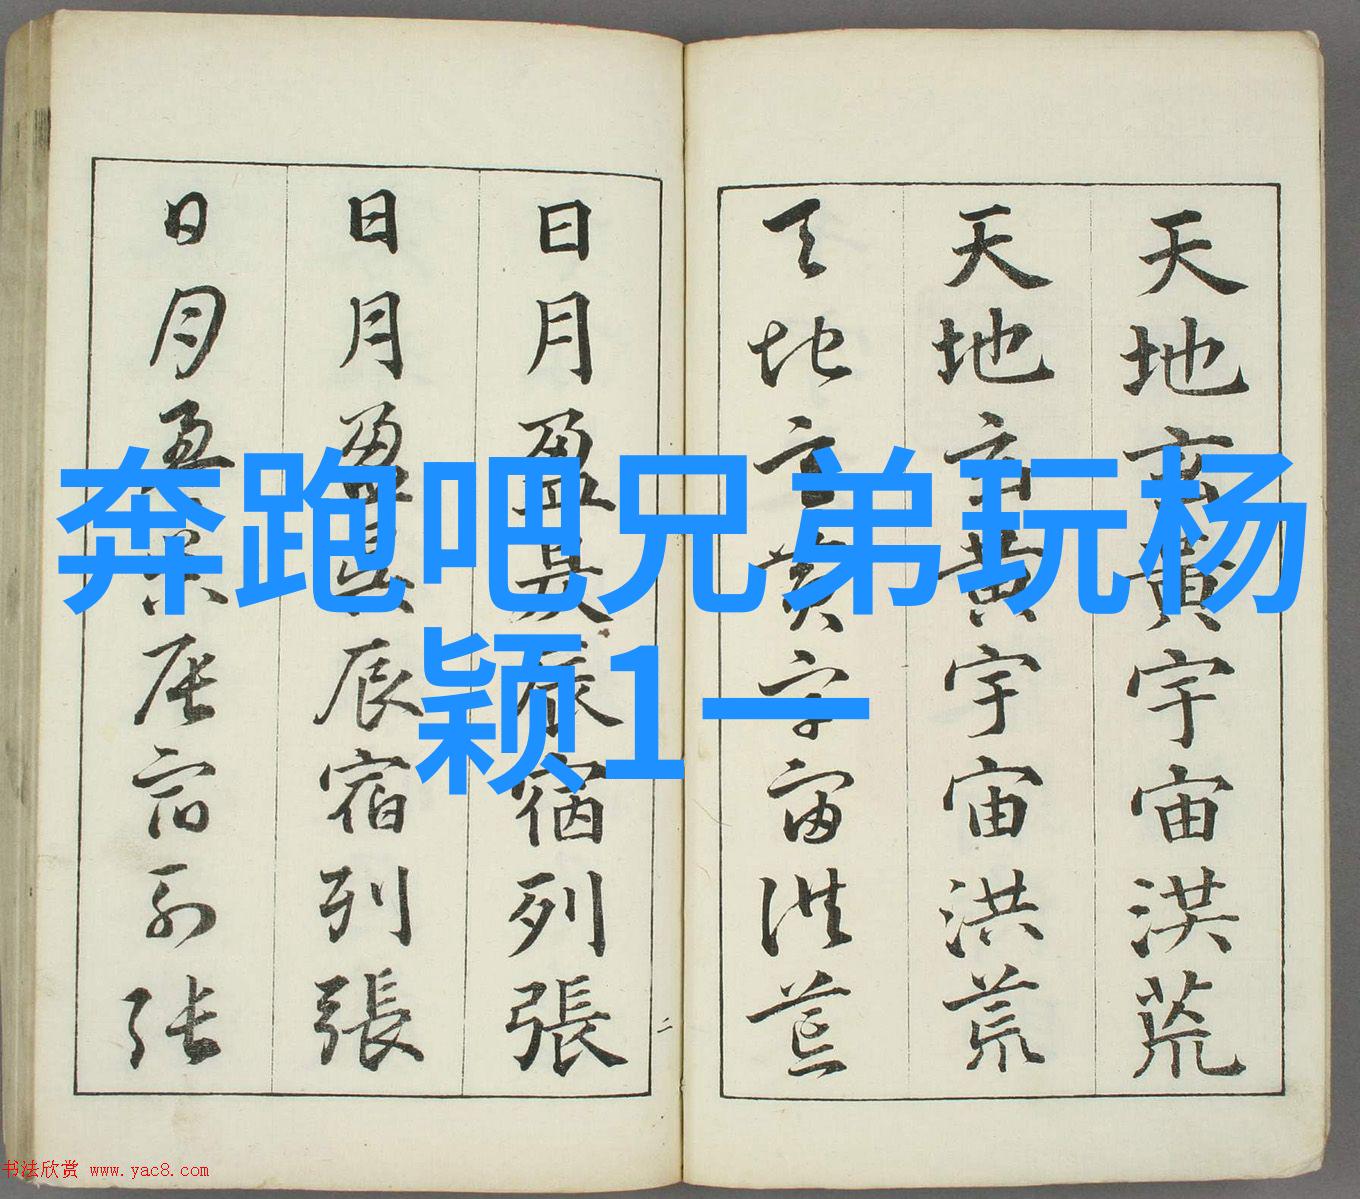 天地玄黃宇宙洪荒
天地玄黃宇宙洪荒
天地玄黃宇宙洪荒
日月盈昃辰宿列張
日月盈昃辰宿列張
日月盈昃辰宿列張
二
奔跑吧兄弟玩杨
颖1一
书法欣赏 www.yac8.com